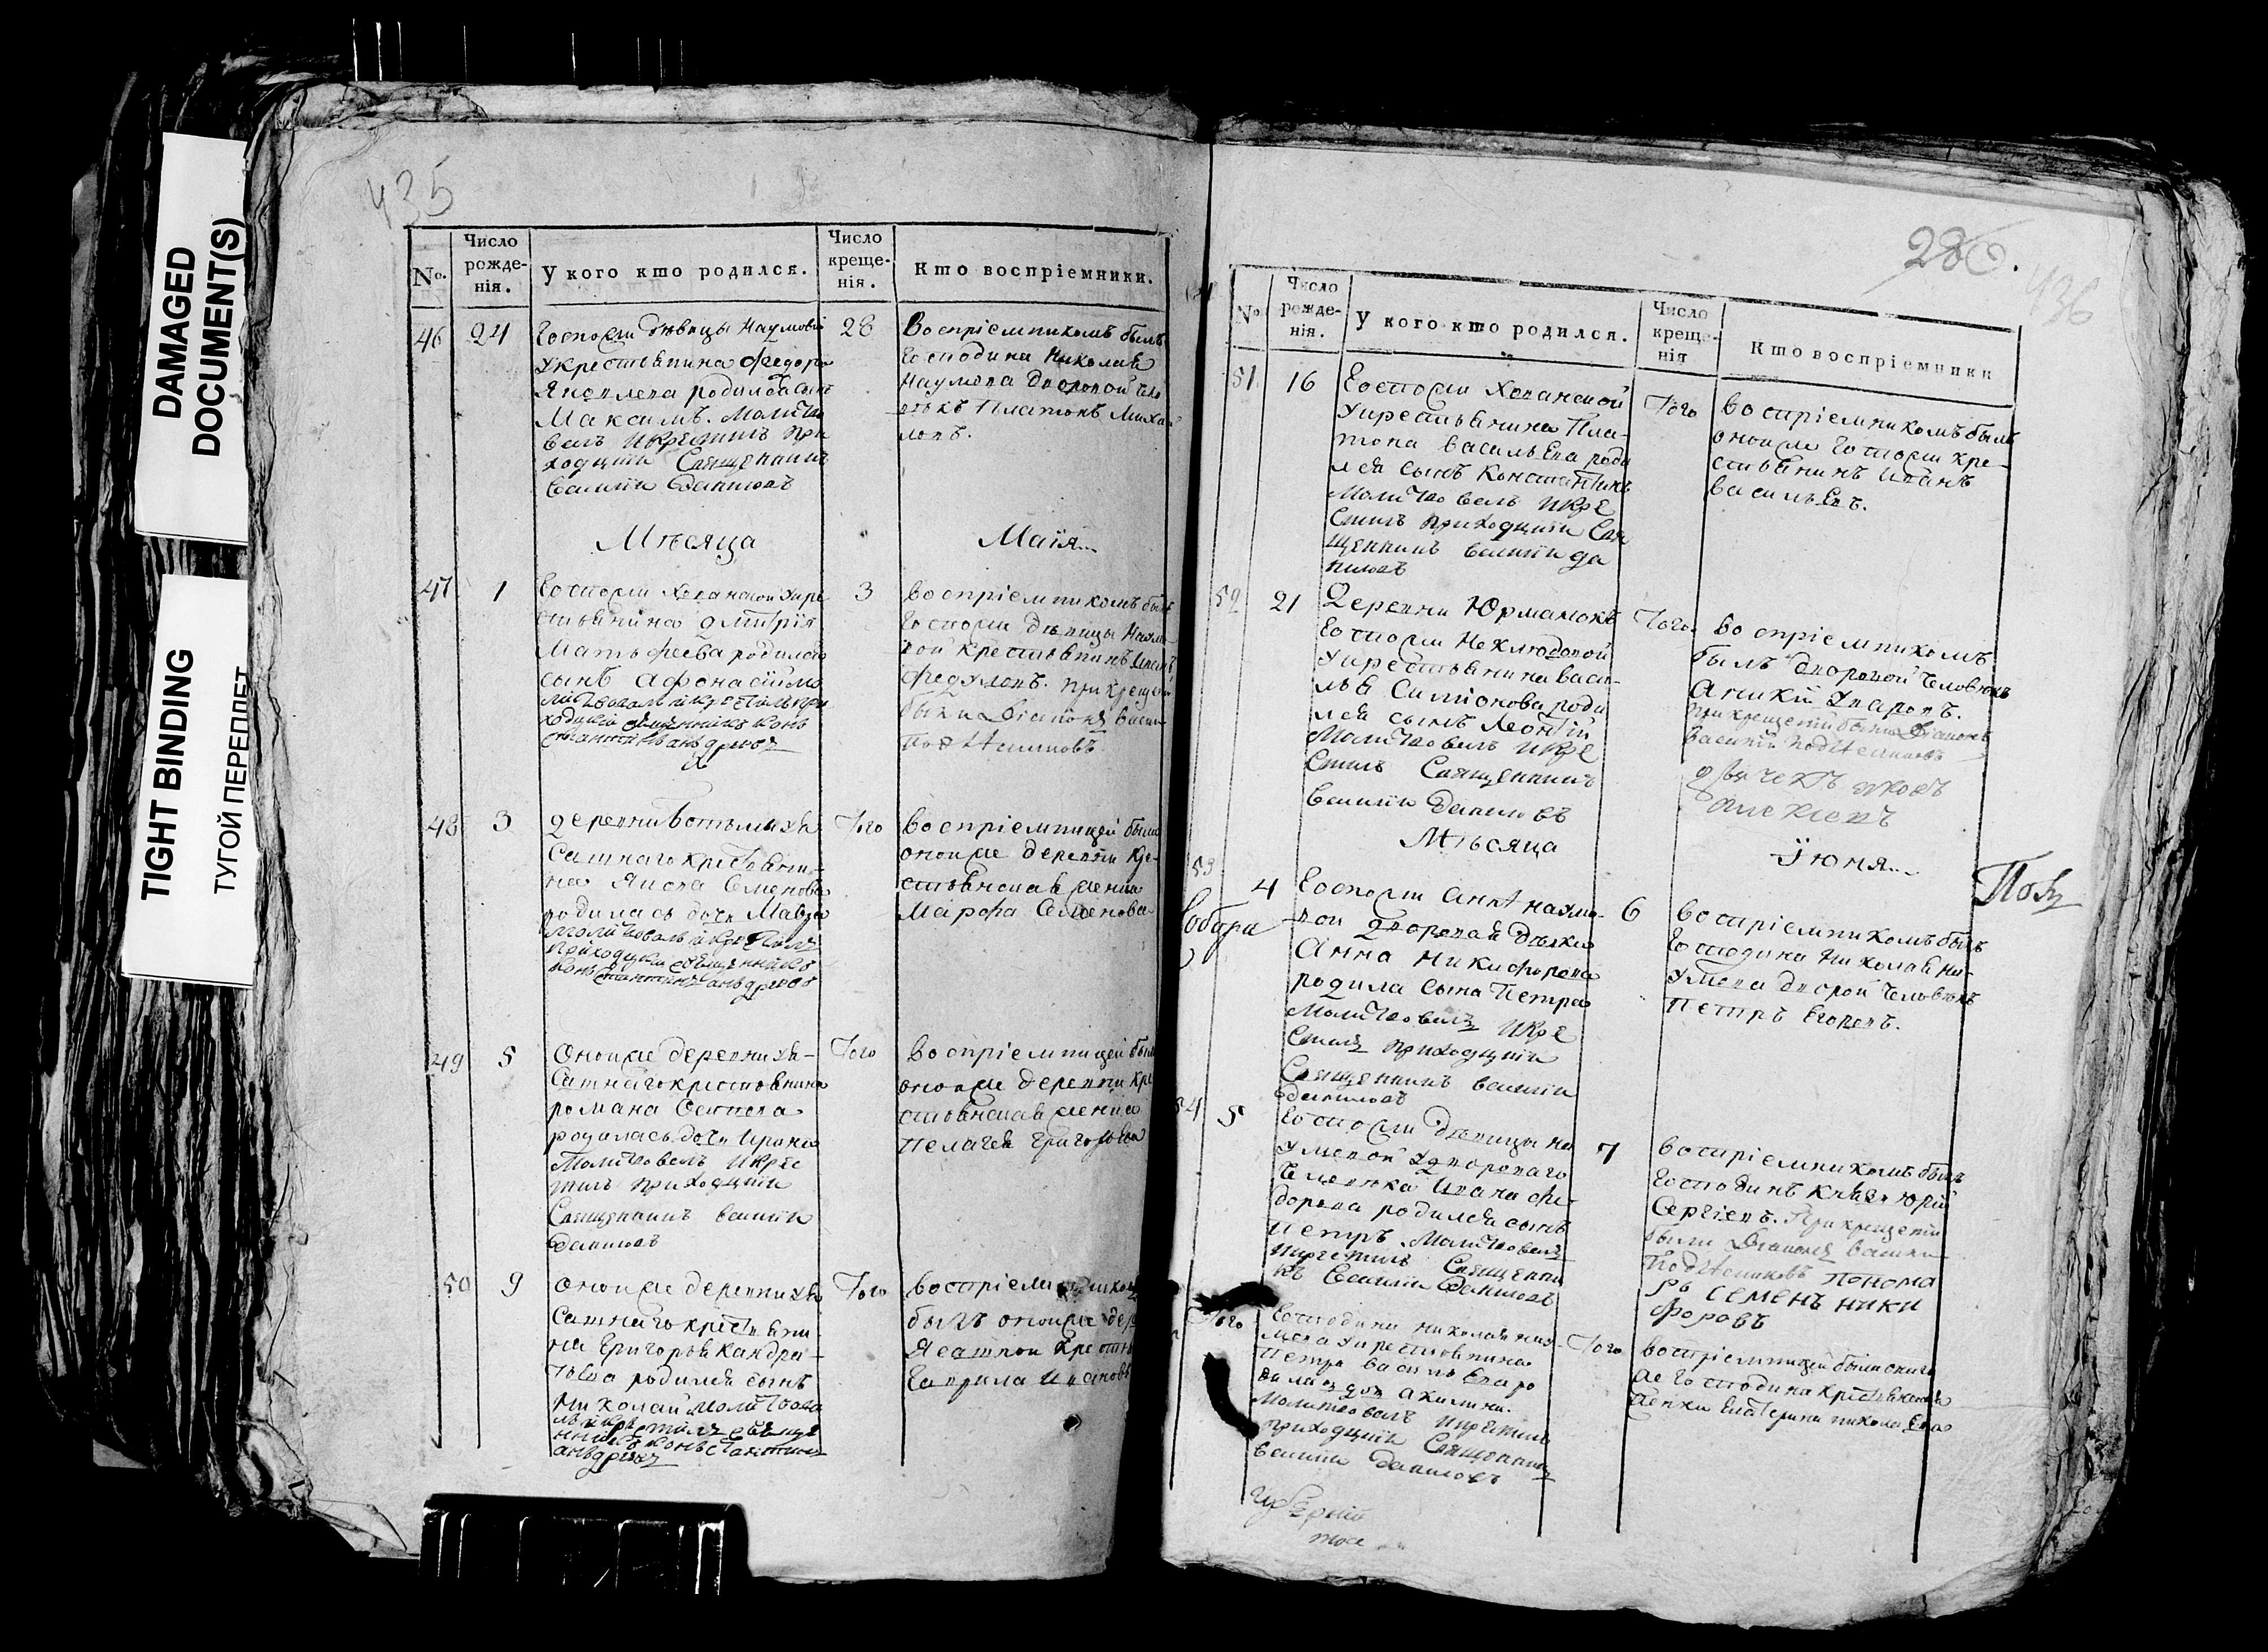 DAMAGED
DOCUMENT(S)
TIGHT BINDING
ТУГОЙ ПЕРЕПЛЕТ
435
No.
Число
рожде-
нія.
У кого кто родился.
Число
креще-
нія.
Кто воспріемники.
46
24
Госпожи дѣвицы Наумовой
у крестьянина Федора
Яковлева родился сынъ
Максимъ. Молитво
валъ и крестилъ при
ходцкій Священникъ
Василій Даниловъ
28
Воспріемникомъ былъ
Господина Николая
Наумова дворовой чело
вѣкъ Платонъ Михай
ловъ.
Мѣсяца
Маія
47
1
Госпожи Хованской у кре
стьянина Дмитрія
Матьфеева родился
сынъ Афонасий мо
литвовалъ и крестилъ при
ходцкій священникъ Конь
стантинъ аньдреевъ
3
Воспріемникомъ былъ
Госпожи дѣвицы Наумо
вой крестьянинъ
Федуловъ. при крещеніи
были Діаконъ Васи
48
3
Деревни
Сашнаго крестьяни-
на Якова Семенова
родилась дочь Мавра
молитвовалъ и крестилъ
приходцкій священникъ
Коньстантинъ аньдреевъ
Того
Воспріемницей была
оной же деревни кре-
стьянская женка
Марфа Семенова
49
5
Оной же деревни Яа-
Сашнаго крестьянина
романа Осипова
родилась дочь Ирина
Молитвовалъ и крес
тилъ приходцкій
Священникъ Василій
Даниловъ
Того
Воспріемницей была
оной же деревни кре
стьянская женка
Пелагея Григорьева
50
9
Оной же деревни Яа
Сашнаго крестьяни-
на Григорья Кандра-
тьева родился сынъ
Николай молитвова
лъ и крестилъ священ
никъ Коньстантинъ
аньдреевъ
Того
Воспріемникомъ
былъ оной же дер
Ясашной крестья
Гаврила Ивановъ
280.
436
No
Число
рожде-
нія.
У кого кто родился.
Число
креще-
нія
Кто воспріемники
51.
16
Госпожи Хованской
у крестьянина Пла-
тона Васильева роди
лся сынъ Константинъ
Молитвовалъ и кре
стилъ приходцкій Свя
щенникъ Василій Да
ниловъ
Того
Воспріемникомъ былъ
оной же Госпожи кре-
стьянинъ Иванъ
Васильевъ.
52
21
Деревни Юрманокъ
Госпожи Неклюдовой
у крестьянина Васи-
лья Симіонова роди
лся сынъ Леонтій
Молитвовалъ и кре
стилъ Священникъ
Василій Даниловъ
Того
Воспріемникомъ
былъ дворовой человѣкъ
Аникій Уваровъ.
При крещеніи были Діаконъ
Василій
дьячекъ яковъ
Мѣсяца
Іюня
53
4
Госпожи Анны Наумо-
вой дворовая дѣвка
Анна Никифорова
родила сына Петра
Молитвовалъ и кре
стилъ приходцкій
Священникъ Василій
Даниловъ
6
Воспріемникомъ былъ
Господина Николая На-
умова дворой человѣкъ
Петръ Егоровъ.
54
5
Госпожи дѣвицы На
умовой у двороваго
человѣка Ивана Фе-
дорова родился сынъ
Петръ. Молитвовалъ
и крестилъ Священни
къ Василій Даниловъ
7
Воспріемникомъ былъ
Господинъ Князь Юрій
Сергіевъ. При крещеніи
были Діаконъ Василій
понома
рь семенъ ники
форовъ
Того
Господина Николая Нау-
мова у крестьянина
Петра Васильева ро
дилась дочь Акилина.
Молитвовалъ и крестилъ
приходцкій Священникъ
Василій Даниловъ
Того
Воспріемницей была оного
же Господина крестьянская
женка Екатерина Николаева